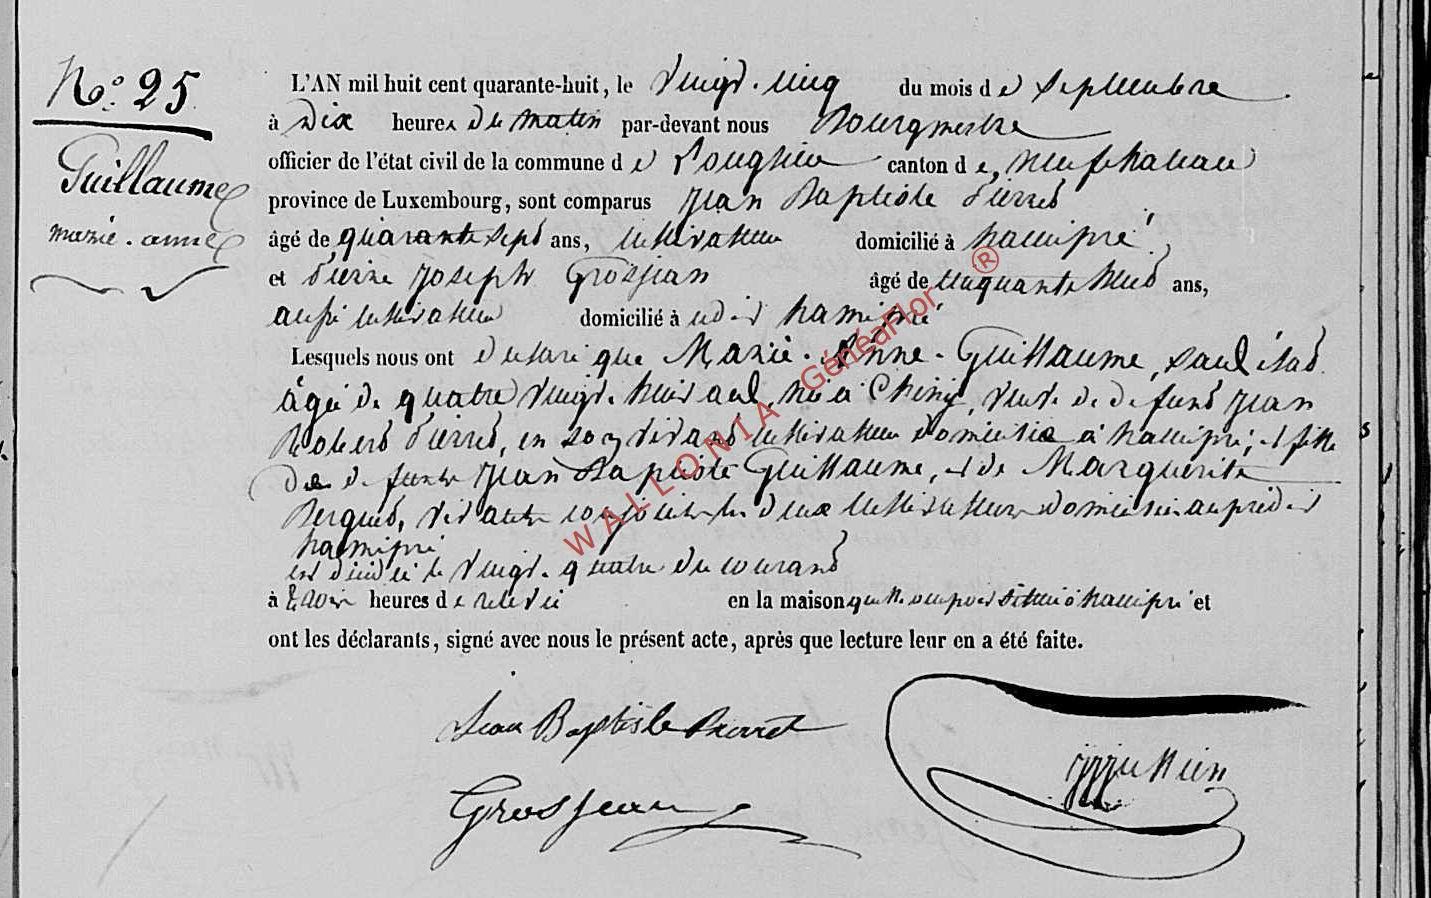 N.° 25
Guillaume
marie-anne
L'AN mil huit cent quarante-huit, le vingt-cinq du mois de septembre
à dix heures du matin par-devant nous Bourgmestre
officier de l'état civil de la commune de Longlier canton de neufchateau
province de Luxembourg, sont comparus Jean Baptiste Pierret
âgé de quarante sept ans, cultivateur domicilié à hamipré,
et Pierre Joseph Grosjean âgé de cinquante huit ans,
aussi cultivateur domicilié à hamipré
Lesquels nous ont déclaré que Marie-Anne-Guillaume, sans état
âgée de quatre vingt huit ans, née à Chiny, veuve de défunt Jean
Robert Pierret, en son vivant cultivateur domicilié à hamipré, et fille
de défunts Jean Baptiste Guillaume, et de Marguerite
vivants conjoints les deux cultivateurs domiciliés
hamipré
est décédée le vingt-quatre du courant
à trois heures de relevée en la maison située à hamipré et
ont les déclarants, signé avec nous le présent acte, après que lecture leur en a été faite.
Jean Baptiste Pierret
Grosjean
WALLONIA GénéaFlor ®